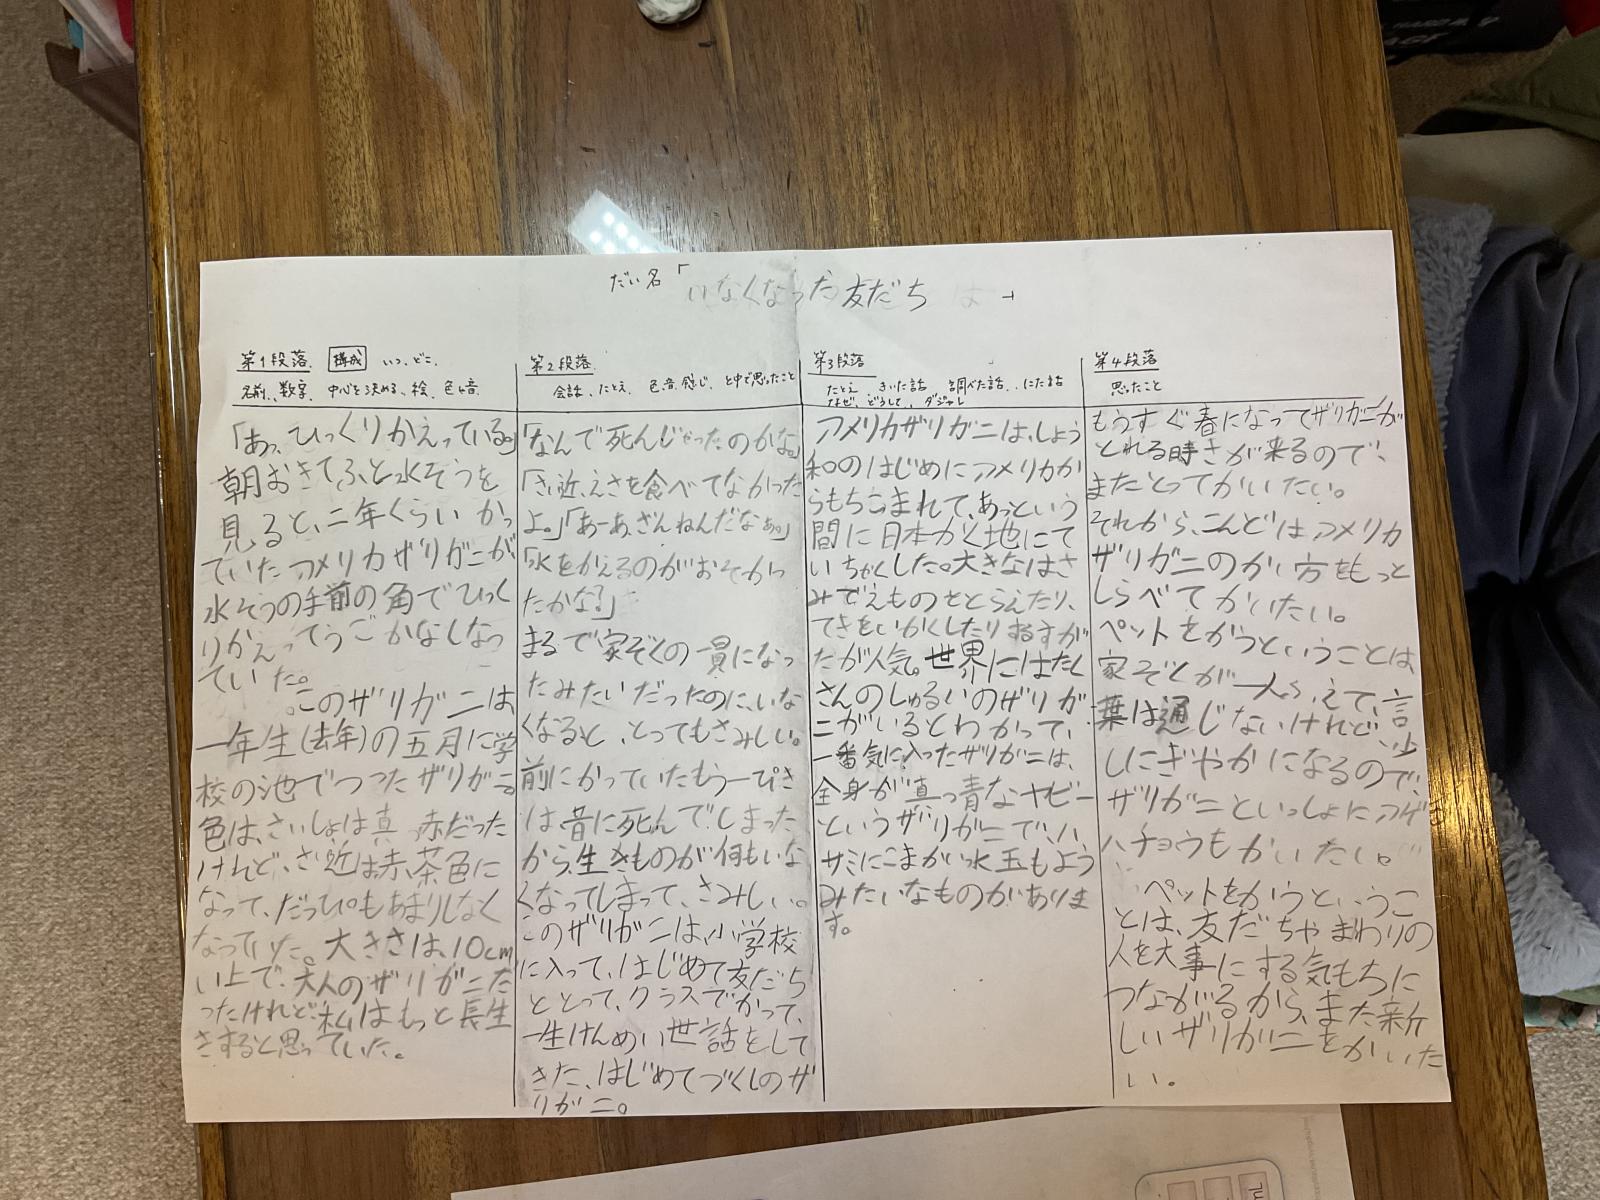 だい名「いなくなった友だち」
第1段落 構成 いつ、どこ、
名前、数字 中心を決める、絵、色、音
「あっ、ひっくりかえっている。」
朝おきてふと水そうを
見ると、二年くらいかっ
ていたアメリカザリガニが
水そうの手前の角でひっく
りかえってうごかなしなっ
ていた。
このザリガニは、
一年生(去年)の五月に学
校の池でつったザリガニ。
色は、さいしょは真っ赤だった
けれど、さい近は赤茶色に
なって、だっぴもあまりしなく
なっていた。大きさは、10cm
い上で、大人のザリガニだ
ったけれど、私はもっと長生
きすると思っていた。
第2段落
会話、たとえ、色、音、感じ、と中で思ったこと
「なんで死んじゃったのかな。」
「さい近、えさを食べてなかった
よ。」「あーあ、ざんねんだなぁ。」
「水をかえるのがおそかっ
たかな?」
まるで家ぞくの一員になっ
たみたいだったのに、いな
くなると、とってもさみしい。
前にかっていたもう一ぴき
は昔に死んでしまった
から、生きものが何もいな
くなってしまって、さみしい。
このザリガニは、小学校
に入って、はじめて友だち
ととって、クラスでかって、
一生けんめい世話をして
きた、はじめてづくしのザ
リガニ。
第3段落
たとえ きいた話 調べた話、にた話
なぜ、どうして、ダジャレ
アメリカザリガニは、しょう
和のはじめにアメリカか
らもちこまれて、あっという
間に日本かく地にて
いちゃくした。大きなはさ
みでえものをとらえたり、
てきをいかくしたりするすが
たが人気。世界にはたく
さんのしゅるいのザリガ
ニがいるとわかって、
一番気に入ったザリガニは、
全身が真っ青なヤビー
というザリガニで、ハ
サミにこまかい水玉もよう
みたいなものがありま
す。
第4段落
思ったこと
もうすぐ春になってザリガニが
とれる時きが来るので、
またとってかいたい。
それから、こんどはアメリカ
ザリガニのかい方をもっと
しらべてかいたい。
ペットをかうということは、
家ぞくが一人ふえて、言
葉は通じないけれど、少
しにぎやかになるので、
ザリガニといっしょにアゲ
ハチョウもかいたい。
ペットをかうというこ
とは、友だちやまわりの
人を大事にする気もちに
つながるから、また新
しいザリガニをかいた
い。